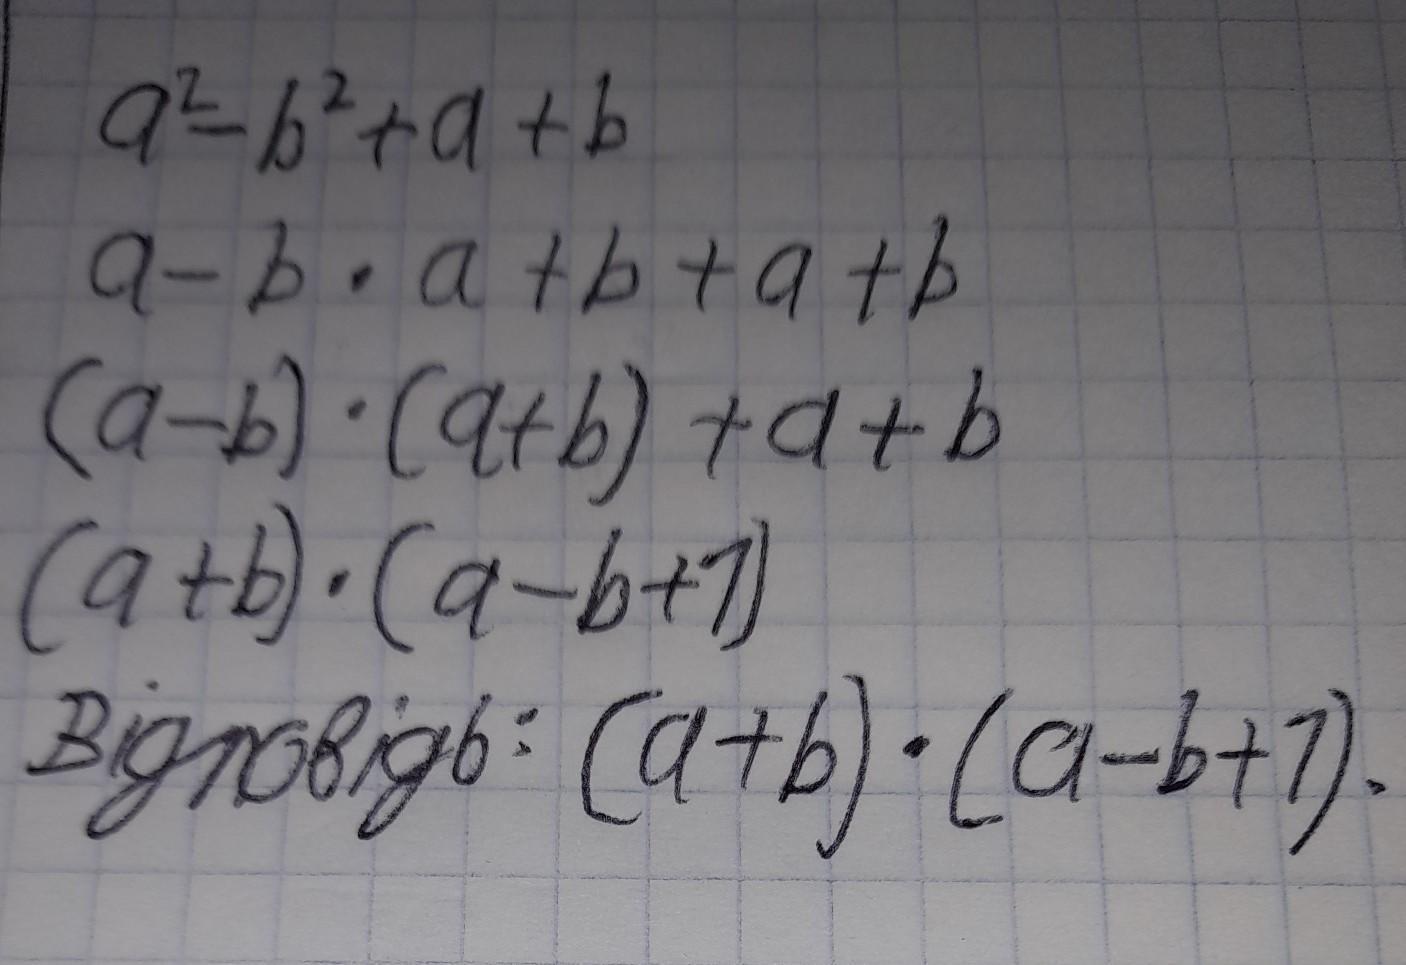 a² - b² + a + b
a - b · a + b + a + b
(a - b) · (a + b) + a + b
(a + b) · (a - b + 1)
Відповідь: (a + b) · (a - b + 1).